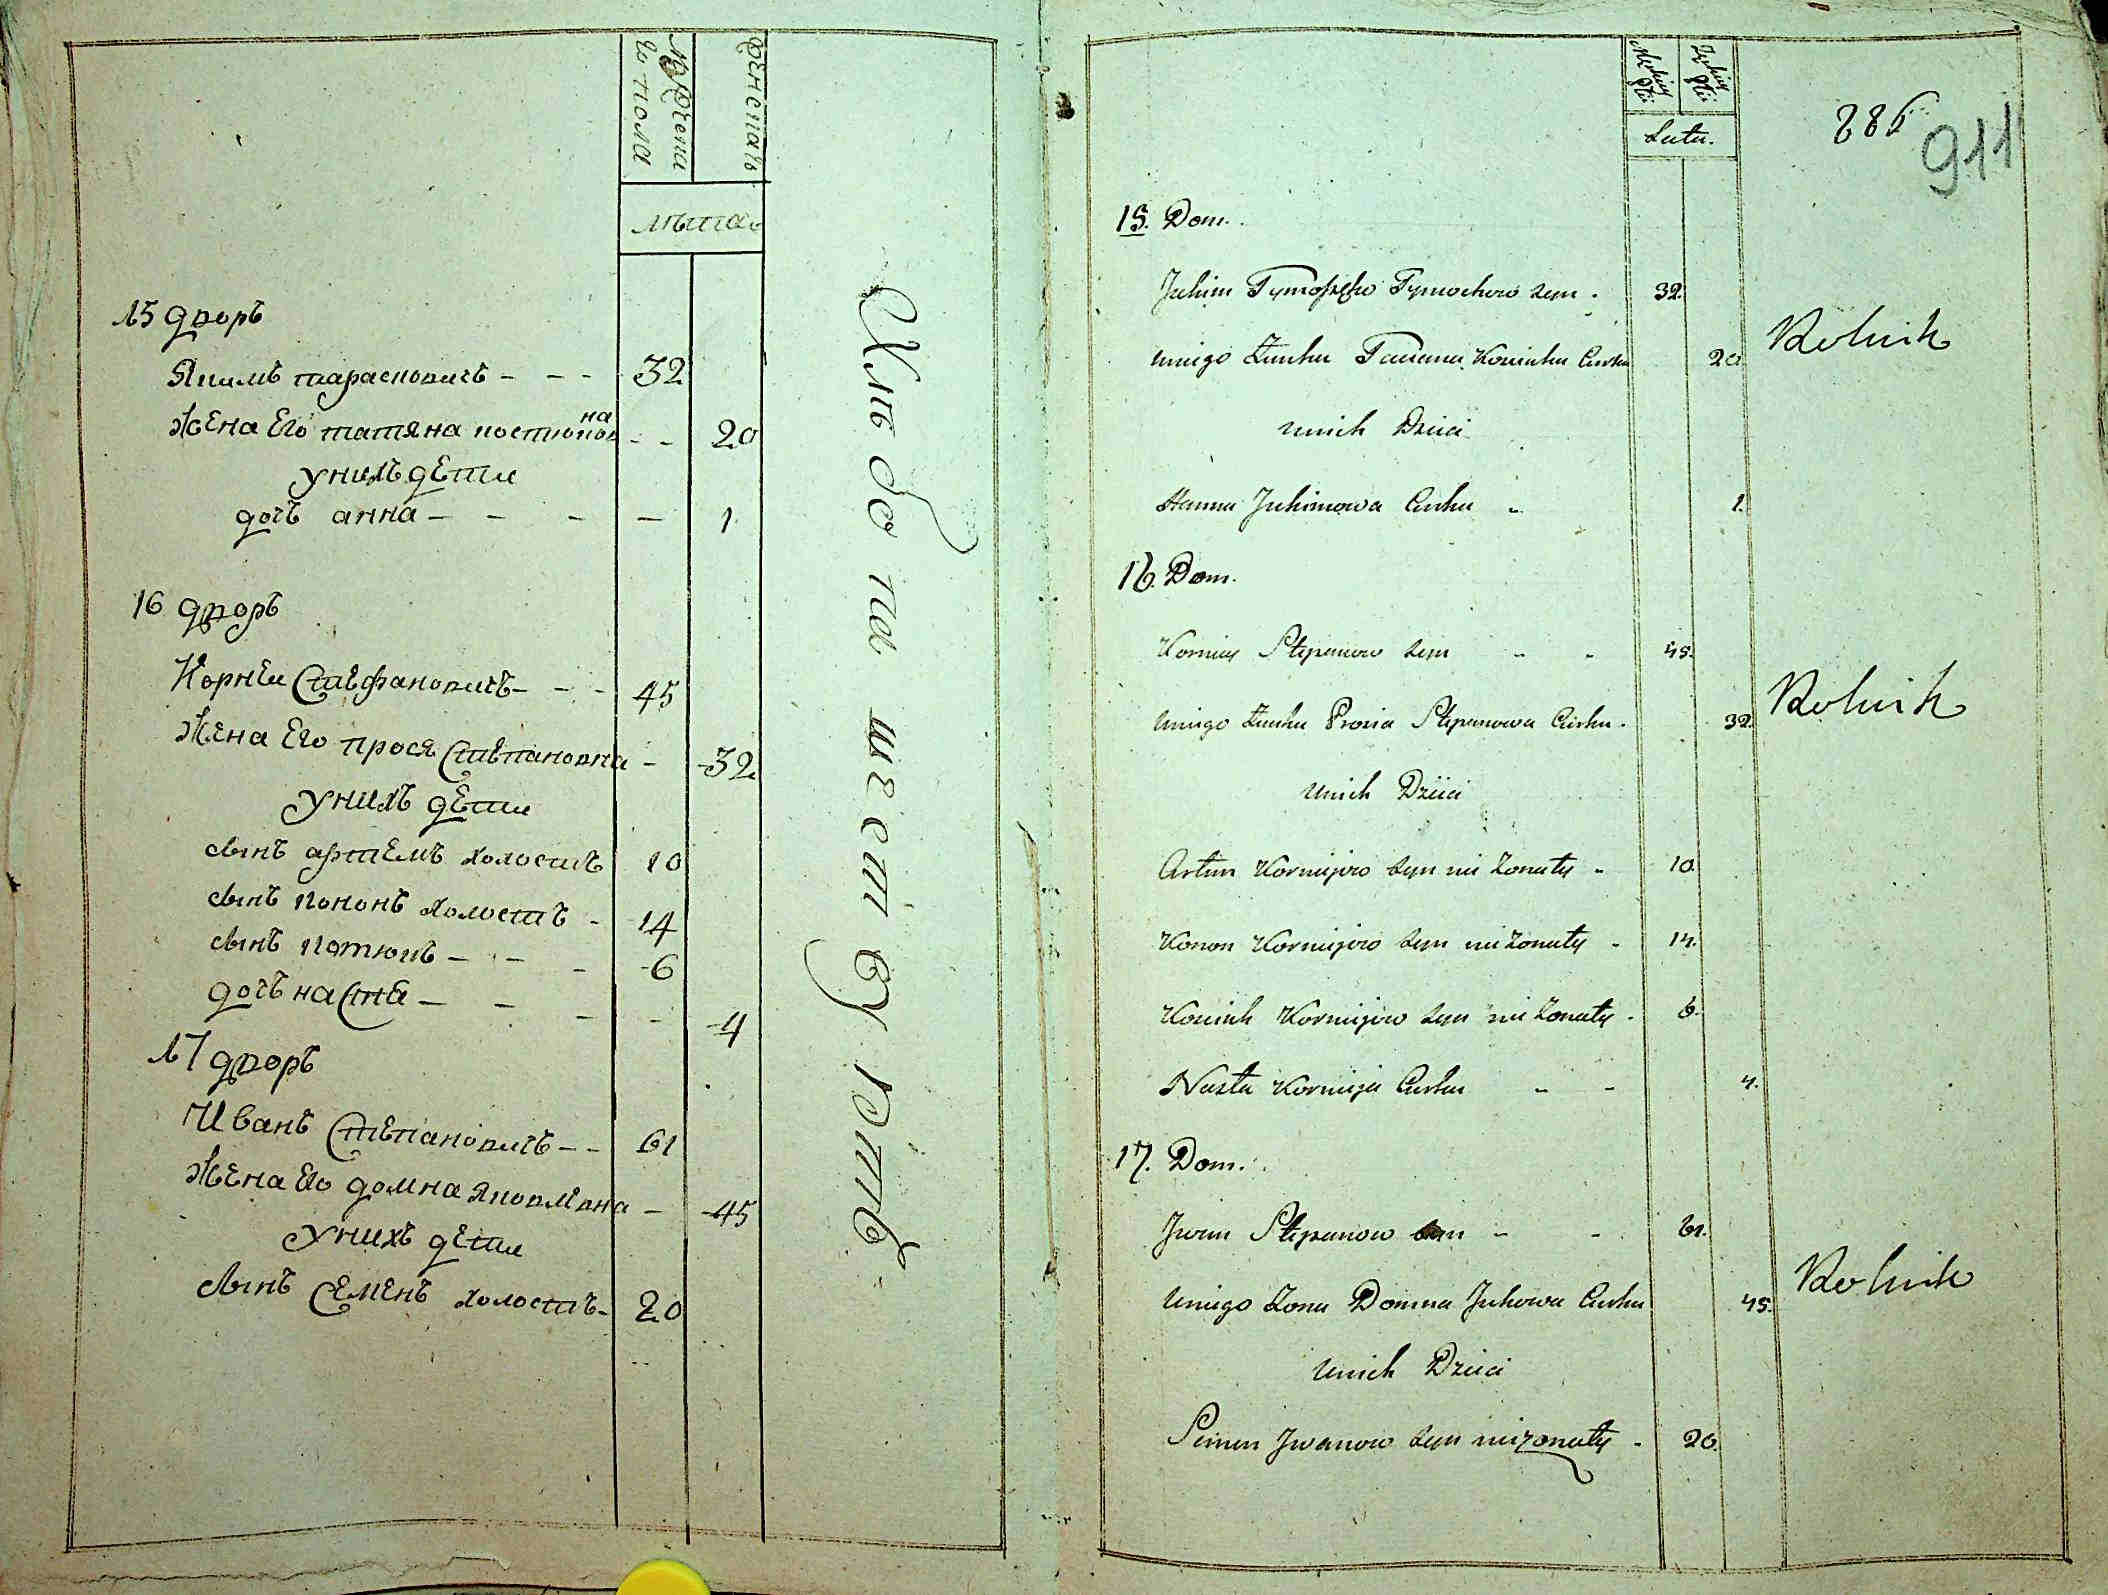 мужеска
го пола
женскаго
лѣта
15 дворъ
Якимъ тарасиовичъ - - - 32
Жена Его татяна костюков
на
- - 20
унихъ дети
дочь анна - - - - 1
16 дворъ
Корнеи Стефановичъ - - - 45
Жена Его прося Степановна - - 32
унихъ дети
сынъ артемъ холостъ 10
сынъ кононъ холостъ - 14
сынъ котюхъ - - - 6
дочь настя - - - - 4
17 дворъ
Иванъ Степановичъ - - 61
Жена Его домна яковлвна - - 45
унихъ дети
сынъ Семенъ холостъ - 20
Хлебопашествуютъ
Męskiej płci
Żeńskiej płci
Lata.
886
911
15. Dom.
Jakim Tymochow syn . 32.
uniego Żonka Taciana Koniuka Curka 20.
unich Dzieci
Hanna Jakimowa Curka - 1.
Rolnik
16. Dom.
Korniey Stepanow syn - - 45.
uniego Żonka Prosia Stepanowa Curka . 32.
Rolnik
unich Dzieci
Artem Kornijow syn nie żonaty - 10.
Konon Kornijow syn nieżonaty - 14.
Kornijow syn nie żonaty - 6.
Nasta Kornija Curka - - 4.
17. Dom.
Jwan Stepanow syn - - 61.
uniego żona Domna Jakowa Curka 45.
Rolnik
unich Dzieci
Semen Jwanow syn nieżonaty - 20.